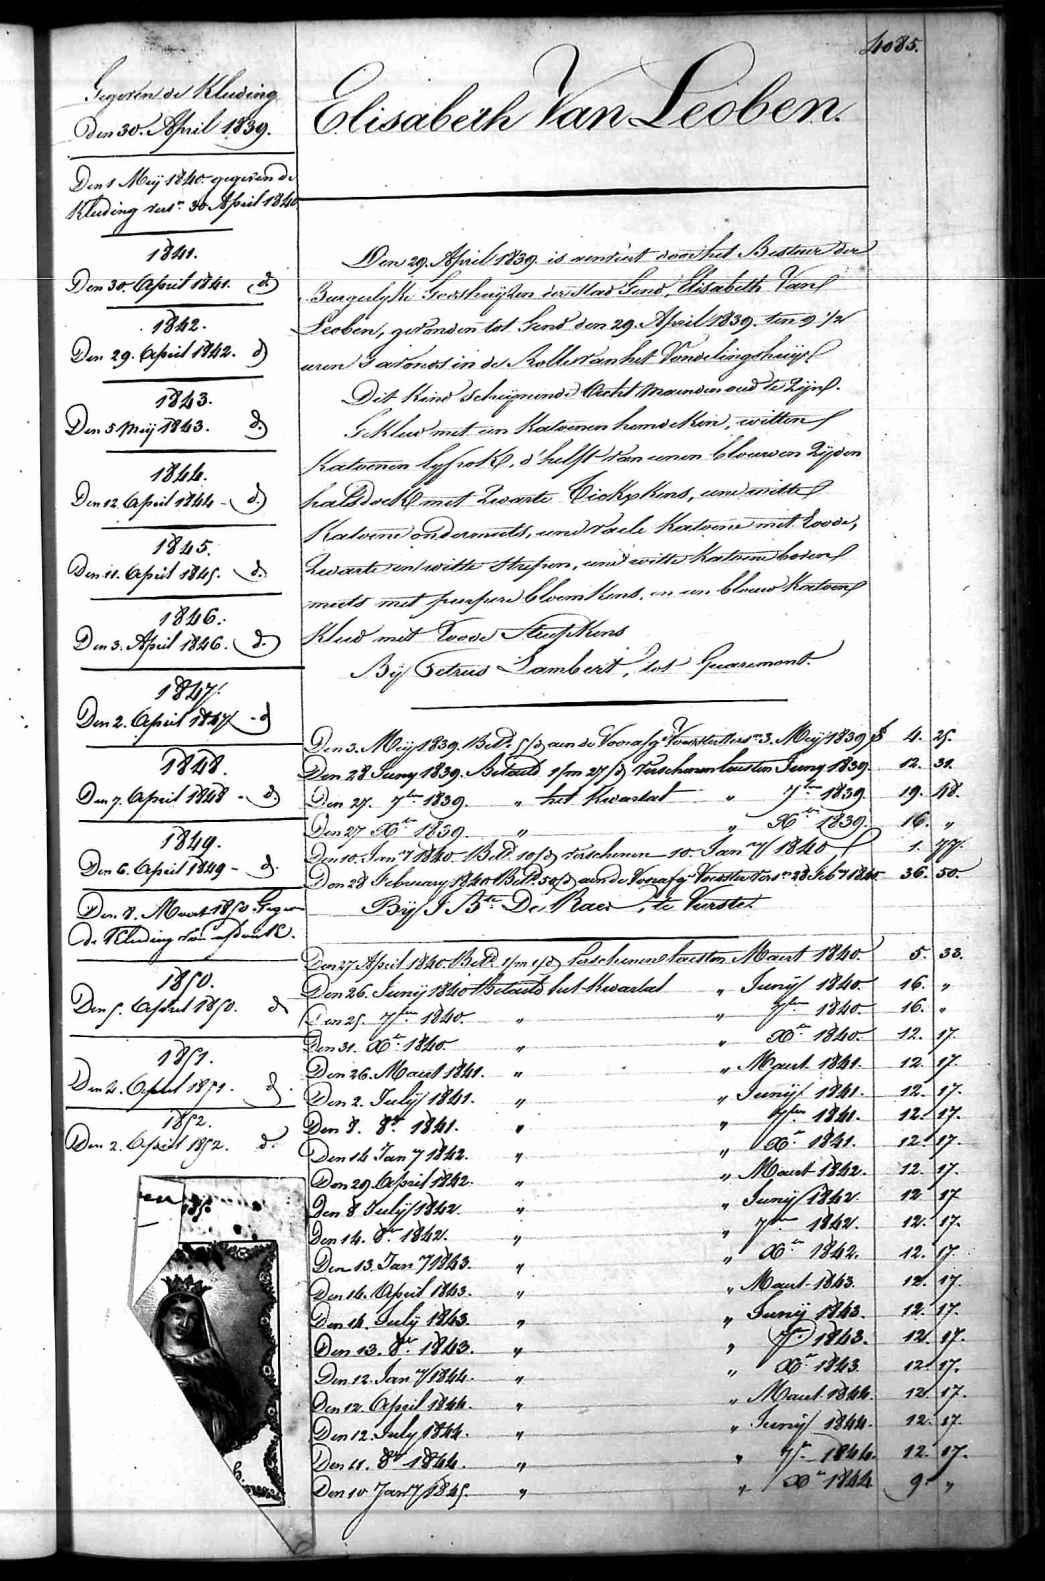 4085.
Elisabeth Van Leoben.
Gegeven de Kleeding
Den 30. April 1839.
Den 1 Meij 1840 gegeven de
Kleeding vers.n 30 April 1840
1841.
Den 30. April 1841. d.
1842.
Den 29. April 1842. d.
1843.
Den 5 Meij 1843. d.
1844.
Den 12. April 1844 - d.
1845.
Den 11. April 1845. d.
1846.
Den 3. April 1846. d.
1847.
Den 2. April 1847 - d
1848.
Den 7. April 1848 - d.
1849.
Den 6. April 1849 - d.
Den 8. Maert 1850 Gegeven
de Kleeding van
1850.
Den 5. April 1850. d
1851.
Den 4. April 1851. d.
1852.
Den 2. April 1852. d.
Den 29. April 1839 is aenveird door het Bestuer der
Burgelijke Godshuijzen der stad Gend, Elisabeth Van
Leoben, gevonden tot Gend den 29. April 1839. ten 9 1/2
uren S'avonds in de Rolle van het Vondelingshuijs
Dit Kind scheijnende Acht maenden oud te Zijn.
Gekleed met een Katoenen hemdeken, witten
Katoenen lyfrok, d'helft van eenen blouwen Zijden
halsdoek met Zwarte Blokskens, eene witte
Katoene ondermuts, eene vaele Katoene met roode,
Zwarte en witte strepen, eene witte Katoene boven
muts met purpere bloemkens, en een blouw Katoen
Kleed met roode Streepkens
Bij Petrus Lambert, tot Quaremont.
Den 3. Meij 1839. Bet.d 5/d aen de Voorzorg Voorstel vers.n 3. Meij 1839 f 4. 25.
Den 28 Junij 1839. Betaeld 1/m 27/d verschenen lesten Junij 1839. 12. 31.
Den 27. 7ber 1839. " het Kwartael " 7ber 1839 19. 48.
Den 27 Xber 1839. " " Xber 1839. 16. "
Den 10. Jan.y 1840 Bet.d 10/d verschenen 10. Jan.y 1840 1. 77.
Den 28 February 1840 Bet.d 50/d aen de Voorzorg Voorstel vers.n 28 Feb.y 1840 36. 50.
Bij J. B.te De Raed, te Vurste.
Den 27 April 1840. Bet.d 1/m 1/d Verschenen lesten Maert 1840. 5. 33.
Den 26. Junij 1840 Betaeld het Kwartael " Junij 1840. 16. "
Den 25. 7ber 1840. " " 7ber 1840. 16. "
Den 31. Xber 1840. " " Xber 1840. 12. 17.
Den 26. Maert 1841. " " Maert 1841. 12 17.
Den 2. July 1841. " " Junij 1841. 12. 17.
Den 8. 8ber 1841. " " 7ber 1841. 12. 17.
Den 14 Jan.y 1842. " " Xber 1841. 12 17
Den 29. April 1842. " " Maert 1842. 12. 17.
Den 8 July 1842. " " Junij 1842. 12 17
Den 14. 8ber 1842. " " 7ber 1842. 12. 17.
Den 13. Jan.y 1843. " " Xber 1842. 12. 17.
Den 14. April 1843. " " Maert 1843. 12. 17.
Den 14. July 1843. " " Junij 1843. 12. 17.
Den 13. 8ber 1843. " " 7ber 1843. 12. 17.
Den 12. Jan.y 1844. " " Xber 1843 12 17.
Den 12. April 1844. " " Maert 1844. 12 17.
Den 12. July 1844. " " Junij 1844. 12. 17.
Den 11. 8ber 1844. " " 7ber 1844. 12. 17.
Den 10 Jan.y 1845. " " Xber 1844 9 "